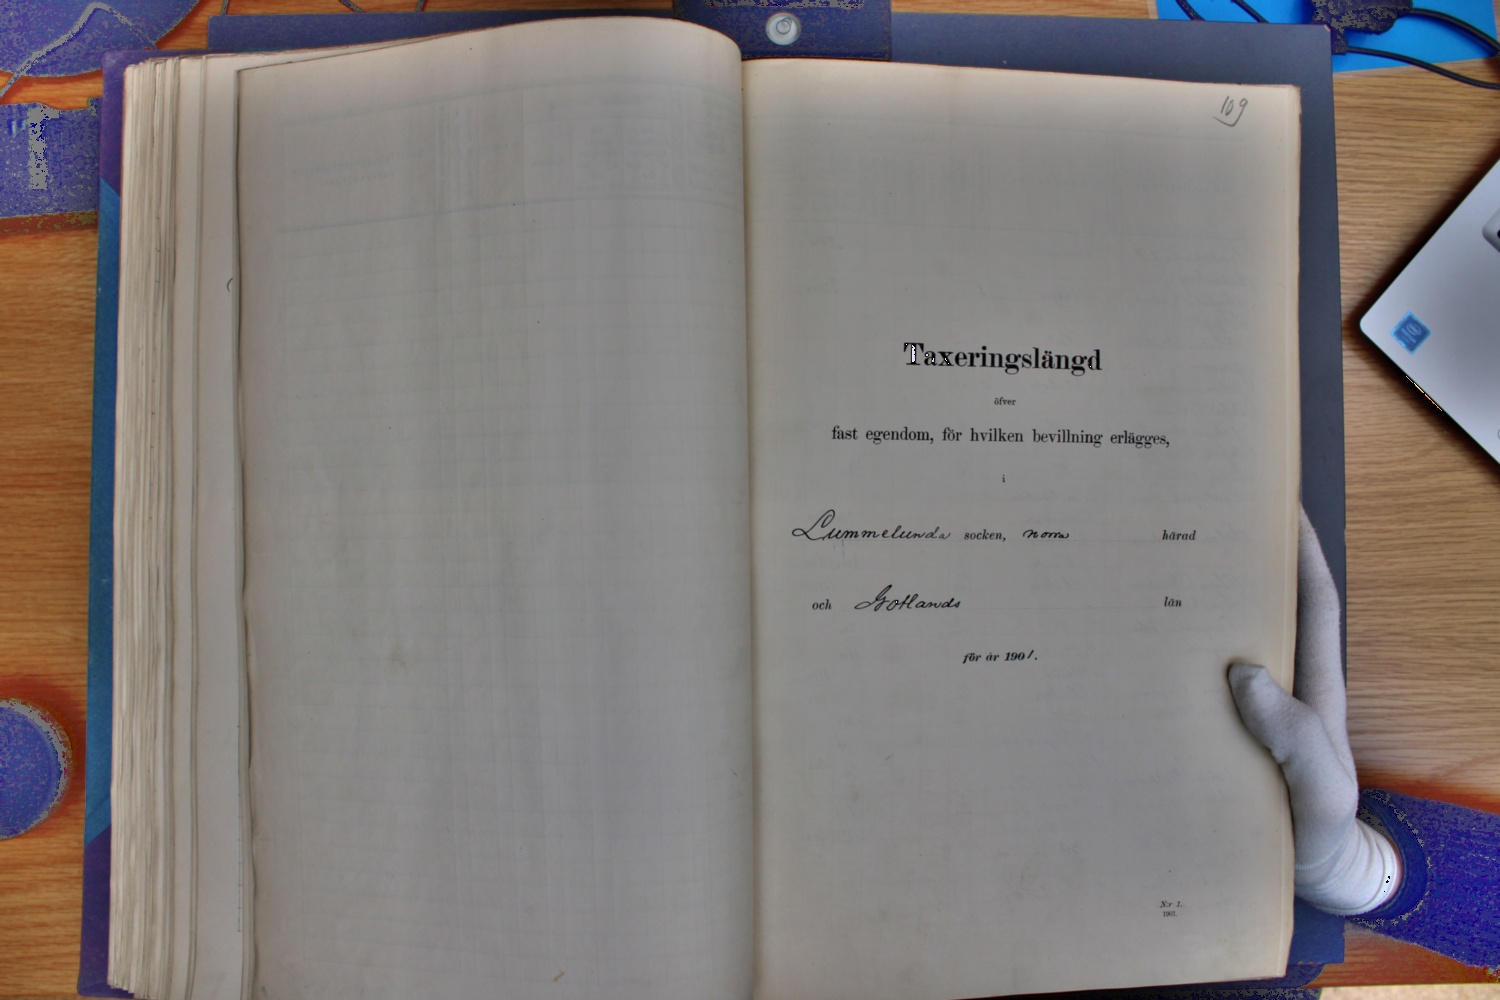 109
Taxeringslängd
öfver
fast egendom, för hvilken bevillning erlägges,
i
Lummelunda socken, norra härad
och Gotlands län
för år 1901.
N:r 1.
1901.